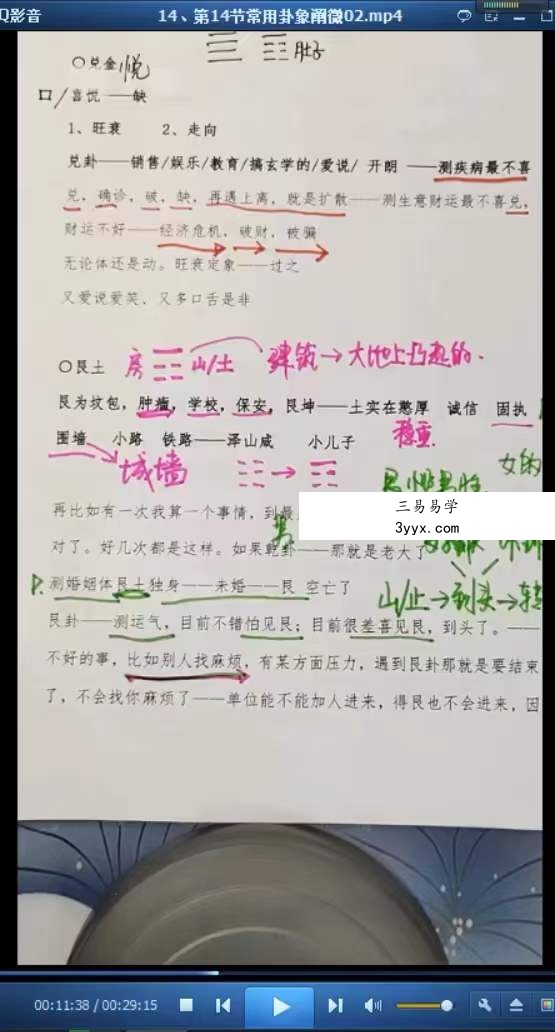 Q影音
14、第14节常用卦象阐微02.mp4
肚子
〇兑金 悦
口/喜悦——缺
1、旺衰 2、走向
兑卦——销售/娱乐/教育/搞玄学的/爱说/ 开朗 ——测疾病最不喜
兑，确诊，破，缺，再遇上离，就是扩散——测生意财运最不喜兑，
财运不好——经济危机，破财，被骗
无论体还是动。旺衰定象——过之
又爱说爱笑、又多口舌是非
〇艮土 房 山/土 建筑→大地上凸起的.
艮为坟包，肿瘤，学校，保安，艮坤——土实在憨厚 诚信 固执
稳重
围墙 小路 铁路——泽山咸 小儿子
城墙
女的
再比如有一次我算一个事情，到最
男
三易易学
3yyx.com
对了。好几次都是这样。如果乾卦——那就是老大了
测婚姻体艮土独身——未婚——艮 空亡了
山/止→到头→转
艮卦——测运气，目前不错怕见艮；目前很差喜见艮，到头了。——
不好的事，比如别人找麻烦，有某方面压力，遇到艮卦那就是要结束
了，不会找你麻烦了——单位能不能加人进来，得艮也不会进来，因
00:11:38 / 00:29:15